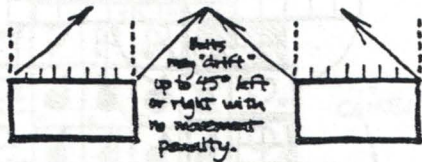 Units
may "drift"
up to 45° left
or right with
no movement
penalty.